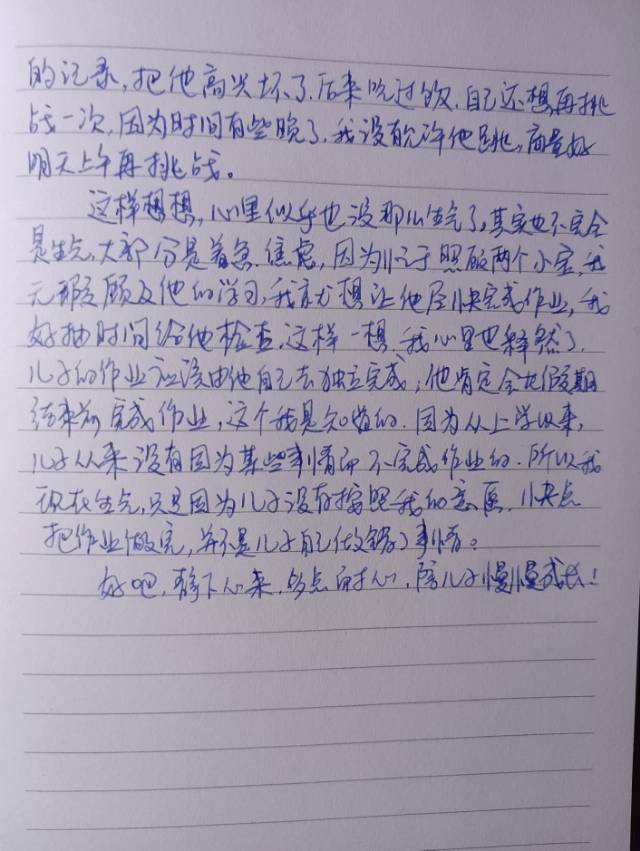 的记录,把他高兴坏了.后来吃过饭,自己还想再挑
战一次,因为时间有些晚了,我没有允许他跳,商量好
明天上午再挑战。
这样想想,心里似乎也没那么生气了,其实也不完全
是生气,大部分是着急.焦虑,因为忙于照顾两个小宝,我
无暇顾及他的学习,我就想让他尽快完成作业,我
好抽时间给他检查.这样一想,我心里也释然了.
儿子的作业应该由他自己去独立完成,他肯定会在假期
结束前完成作业,这个我是知道的.因为从上学以来,
儿子从来没有因为某些事情而不完成作业的.所以我
现在生气,只是因为儿子没有按照我的意愿,快点
把作业做完,并不是儿子自己做错了事情。
好吧,静下心来,多点耐心,陪儿子慢慢成长!